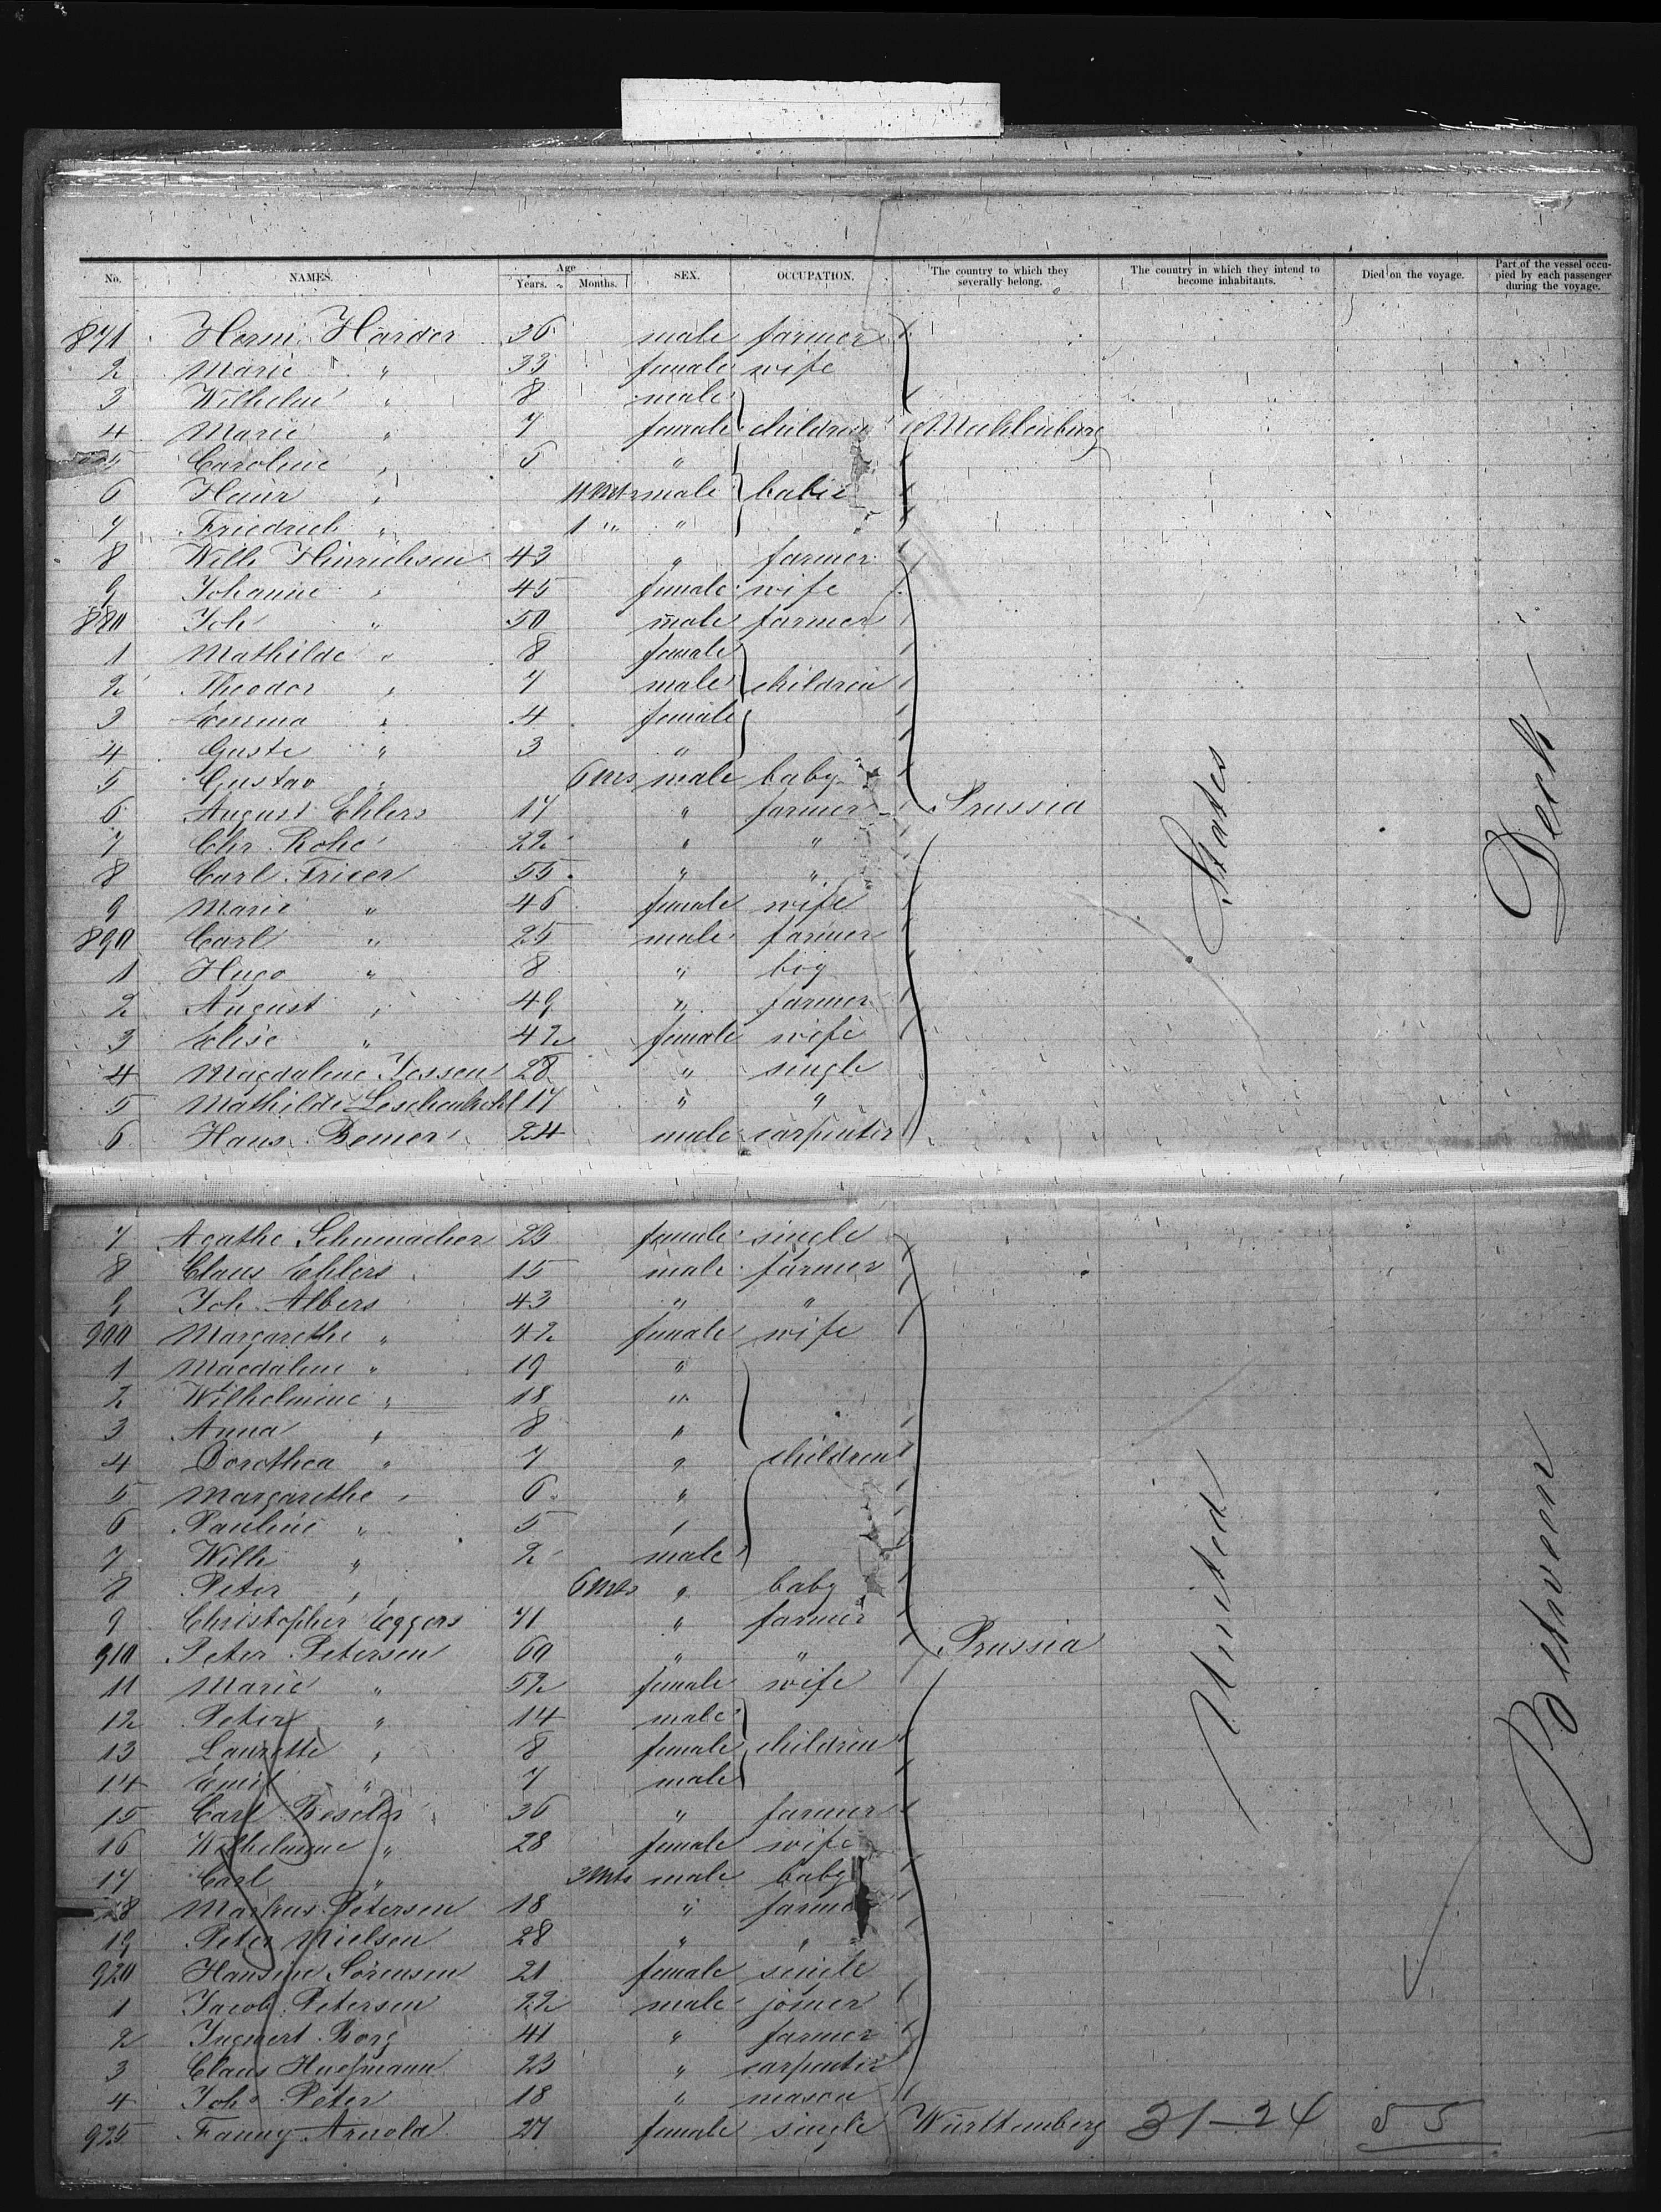 No. NAMES. Age Years. Months. SEX. OCCUPATION. The country to which they severally belong. The country in which they intend to become inhabitants. Died on the voyage. Part of the vessel occupied by each passenger during the voyage.
871 Herm. Harder 36 male farmer
2 Marie " 33 female wife
3 Wilhelm " 8 male
4 Marie " 7 female children Mecklenburg
5 Caroline " 5 "
6 Heinr " 11 Mts male babie
7 Friedrich " 1 " "
8 Wilh Hinrichsen 43 " farmer
9 Johanne " 45 female wife
880 Joh " 50 male farmer
1 Mathilde " 8 female
2 Theodor " 7 male children
3 Emma " 4 female
4 Guste " 3 "
5 Gustav " 6 Mts male baby
6 August Ehlers 17 " farmer Prussia
7 Chr. Rohe 22 " "
8 Carl Fricer 55 " "
9 Marie " 46 female wife
890 Carl " 25 male farmer
1 Hugo " 8 " boy
2 August " 49 " farmer
3 Elise " 42 female wife
4 Magdalene Jessen 28 " single
5 Mathilde 17 " "
6 Hans Bemer 24 male carpenter
7 Agathe Schumacher 23 female single
8 Claus Ehlers 15 male farmer
9 Joh. Albers 43 " "
900 Margarethe " 42 female wife
1 Magdalene " 19 "
2 Wilhelmine " 18 "
3 Anna " 8 "
4 Dorothea " 7 " children
5 Margarethe " 6 "
6 Pauline " 5 "
7 Wilh " 2 male
8 Peter " 6 Mts " baby
9 Christopher Eggers 71 " farmer
910 Peter Petersen 60 " " Prussia
11 Marie " 52 female wife
12 Peter " 14 male
13 Laurette " 8 female children
14 Emil " 7 male
15 Carl 36 " farmer
16 Wilhelmine " 28 female wife
17 Carl " 3 Mts male baby
18 Markus Petersen 18 " farmer
19 Peter Nielsen 28 " "
920 Hansine Sörensen 21 female single
1 Jacob Petersen 22 male joiner
2 Ingwert Borg 41 " farmer
3 Claus 23 " carpenter
4 Joh. Peter 18 " mason
925 Fanny Arnold 27 female single Württemberg 31-24 55
United States
Between Deck